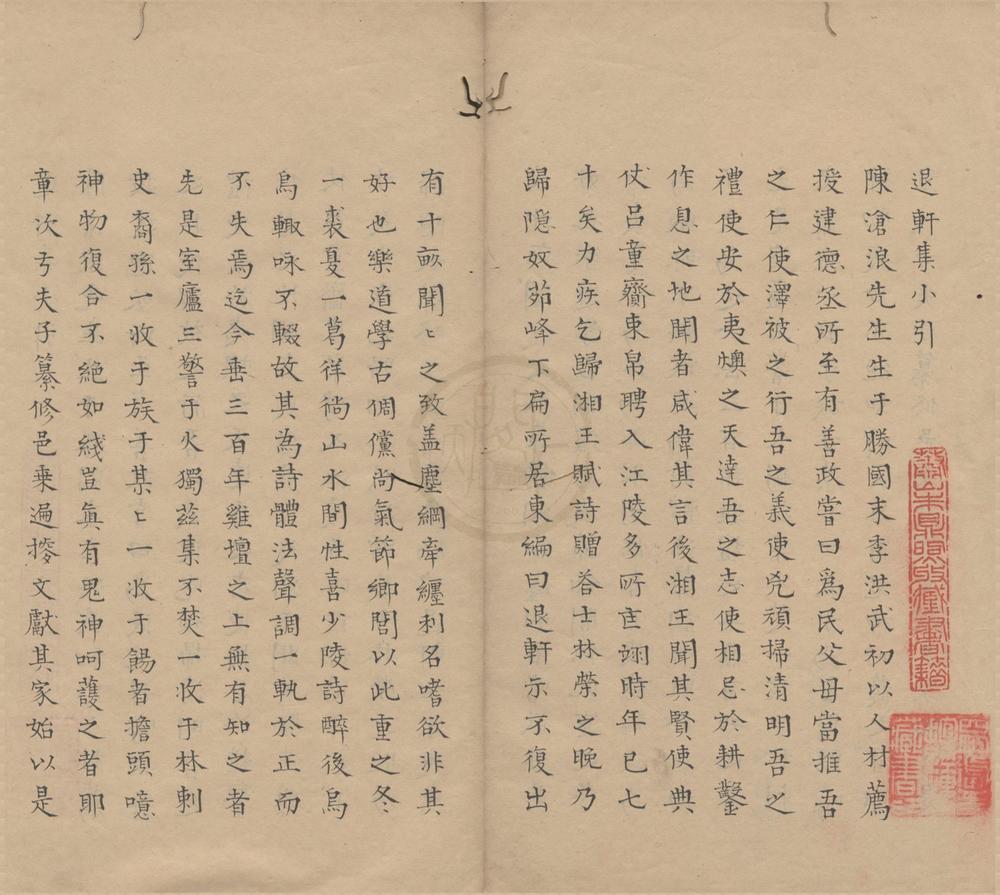 退軒集小引
陳滄浪先生生于勝國末季洪武初以人材薦
授建德丞所至有善政嘗曰爲民父母當推吾
之仁使澤被之行吾之義使兇頑掃清明吾之
禮使安於夷燠之天達吾之志使相忘於耕鑿
作息之地聞者咸偉其言後湘王聞其賢使典
仗呂童齎束帛聘入江陵多所匡翊時年已七
十矣力疾乞歸湘王賦詩贈荅士林榮之晚乃
歸隐奴茆峰下扁所居東編曰退軒示不復出
有十畞聞〻之致盖塵網牽纏利名嗜欲非其
好也樂道學古倜儻尚氣節鄉閭以此重之冬
一裘夏一葛徉徜山水間性喜少陵詩醉後烏
烏輙咏不輟故其為詩體法聲調一軌於正而
不失焉迄今垂三百年雞壇之上無有知之者
先是室廬三警于火獨兹集不焚一收于林刺
史裔孫一收于族子某〻一收于餳者擔頭噫
神物復合不絶如綫豈眞有鬼神呵護之者耶
章次方夫子纂修邑乗遍搜文獻其家始以是